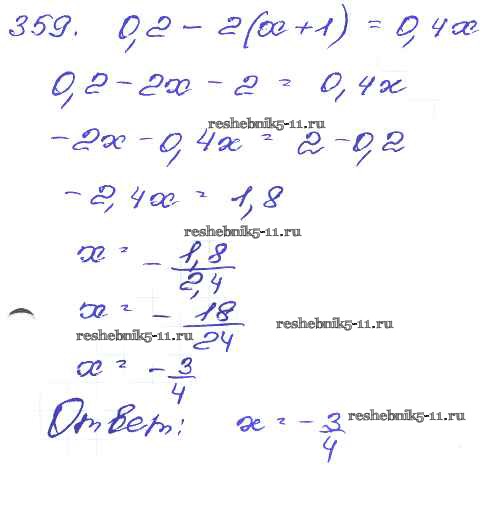 359. 0,2 - 2(x+1) = 0,4x
0,2 - 2x - 2 = 0,4x
reshebnik5-11.ru
-2x - 0,4x = 2 - 0,2
-2,4x = 1,8
reshebnik5-11.ru
x = - 1,8/2,4
x = - 18/24
reshebnik5-11.ru
reshebnik5-11.ru
x = - 3/4
Ответ: x = - 3/4
reshebnik5-11.ru